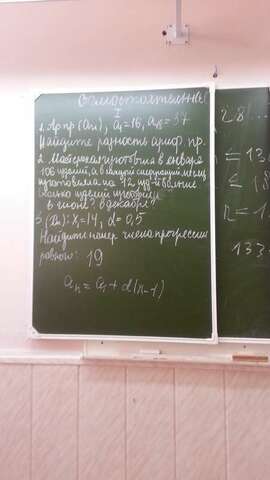 Самостоятельная
I
1. Ар пр (an), a1=16, a18=37
Найдите разность ариф. пр.
2. Мастерская изготовила в январе
106 изделий, а в каждый следующий месяц
изготовляла на 12 изд-й больше
сколько изделий изготовили
в июне? в декабре?
3. (xn): x1=14, d=0,5
Найдите номер члена прогрессии
равного: 19
an=a1+d(n-1)
28...
13
n=1
133